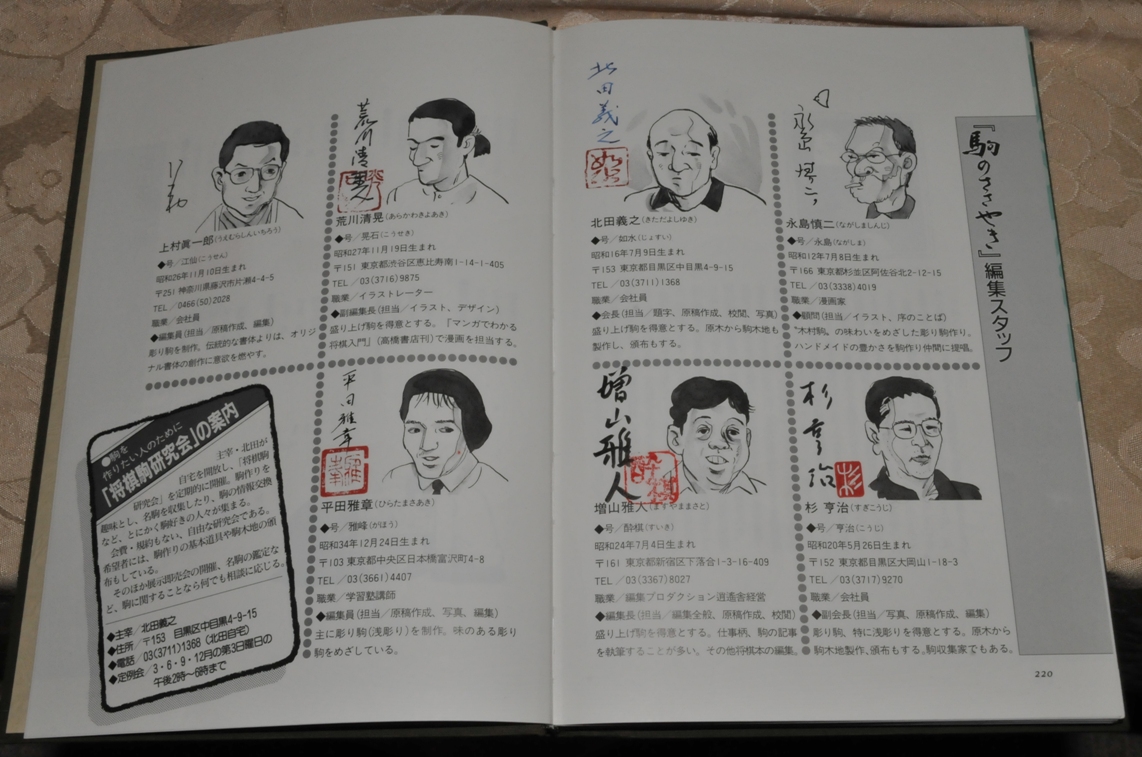 『駒のささやき』編集スタッフ
永島慎二(ながしましんじ)
◆号／永島(ながしま)
昭和12年7月8日生まれ
〒166 東京都杉並区阿佐谷北2-12-15
TEL／03(3338)4019
職業／漫画家
◆顧問(担当／イラスト、序のことば)
"木村駒〟の味わいをめざした彫り駒作り。
ハンドメイドの豊かさを駒作り仲間に提唱。
北田義之
北田義之(きただよしゆき)
◆号／如水(じょすい)
昭和16年7月9日生まれ
〒153 東京都目黒区中目黒4-9-15
TEL／03(3711)1368
職業／会社員
◆会長(担当／題字、原稿作成、校閲、写真)
盛り上げ駒を得意とする。原木から駒木地も
製作し、頒布もする。
杉亨治
杉
杉 亨治(すぎこうじ)
◆号／亨治(こうじ)
昭和20年5月26日生まれ
〒152 東京都目黒区大岡山1-18-3
TEL／03(3717)9270
職業／会社員
◆副会長(担当／写真、原稿作成、編集)
彫り駒、特に浅彫りを得意とする。原木から
駒木地製作、頒布もする。駒収集家でもある。
増山雅人
酔棋
増山雅人(ますやままさと)
◆号／酔棋(すいき)
昭和24年7月4日生まれ
〒161 東京都新宿区下落合1-3-16-409
TEL／03(3367)8027
職業／編集プロダクション逍遙舎経営
◆編集長(担当／編集全般、原稿作成、校閲)
盛り上げ駒を得意とする。仕事柄、駒の記事
を執筆することが多い。その他将棋本の編集。
220
荒川清晃
荒川清晃(あらかわきよあき)
◆号／晃石(こうせき)
昭和27年11月19日生まれ
〒151 東京都渋谷区恵比寿南1-14-1-405
TEL／03(3716)9875
職業／イラストレーター
◆副編集長(担当／イラスト、デザイン)
盛り上げ駒を得意とする。『マンガでわかる
将棋入門』(高橋書店刊)で漫画を担当する。
上村眞一郎(うえむらしんいちろう)
◆号／江仙(こうせん)
昭和26年11月10日生まれ
〒251 神奈川県藤沢市片瀬4-4-5
TEL／0466(50)2028
職業／会社員
◆編集員(担当／原稿作成、編集)
彫り駒を制作。伝統的な書体よりは、オリジ
ナル書体の創作に意欲を燃やす。
平田雅章
平田雅章(ひらたまさあき)
◆号／雅峰(がほう)
昭和34年12月24日生まれ
〒103 東京都中央区日本橋富沢町4-8
TEL／03(3661)4407
職業／学習塾講師
◆編集員(担当／原稿作成、写真、編集)
主に彫り駒(浅彫り)を制作。味のある彫り
駒をめざしている。
●駒を
作りたい人のために
「将棋駒研究会」の案内
主宰・北田が
自宅を開放し、「将棋駒
研究会」を定期的に開催。駒作りを
趣味とし、名駒を収集したり、駒の情報交換
など、とにかく駒好きの人々が集まる。
会費・規約もない、自由な研究会である。
希望者には、駒作りの基本道具や駒木地の頒
布もしている。
そのほか展示即売会の開催、名駒の鑑定な
ど、駒に関することなら何でも相談に応じる。
◆主宰／北田義之
◆住所／〒153 目黒区中目黒4-9-15
◆電話／03(3711)1368(北田自宅)
◆定例会／3・6・9・12月の第3日曜日の
午後2時〜6時まで